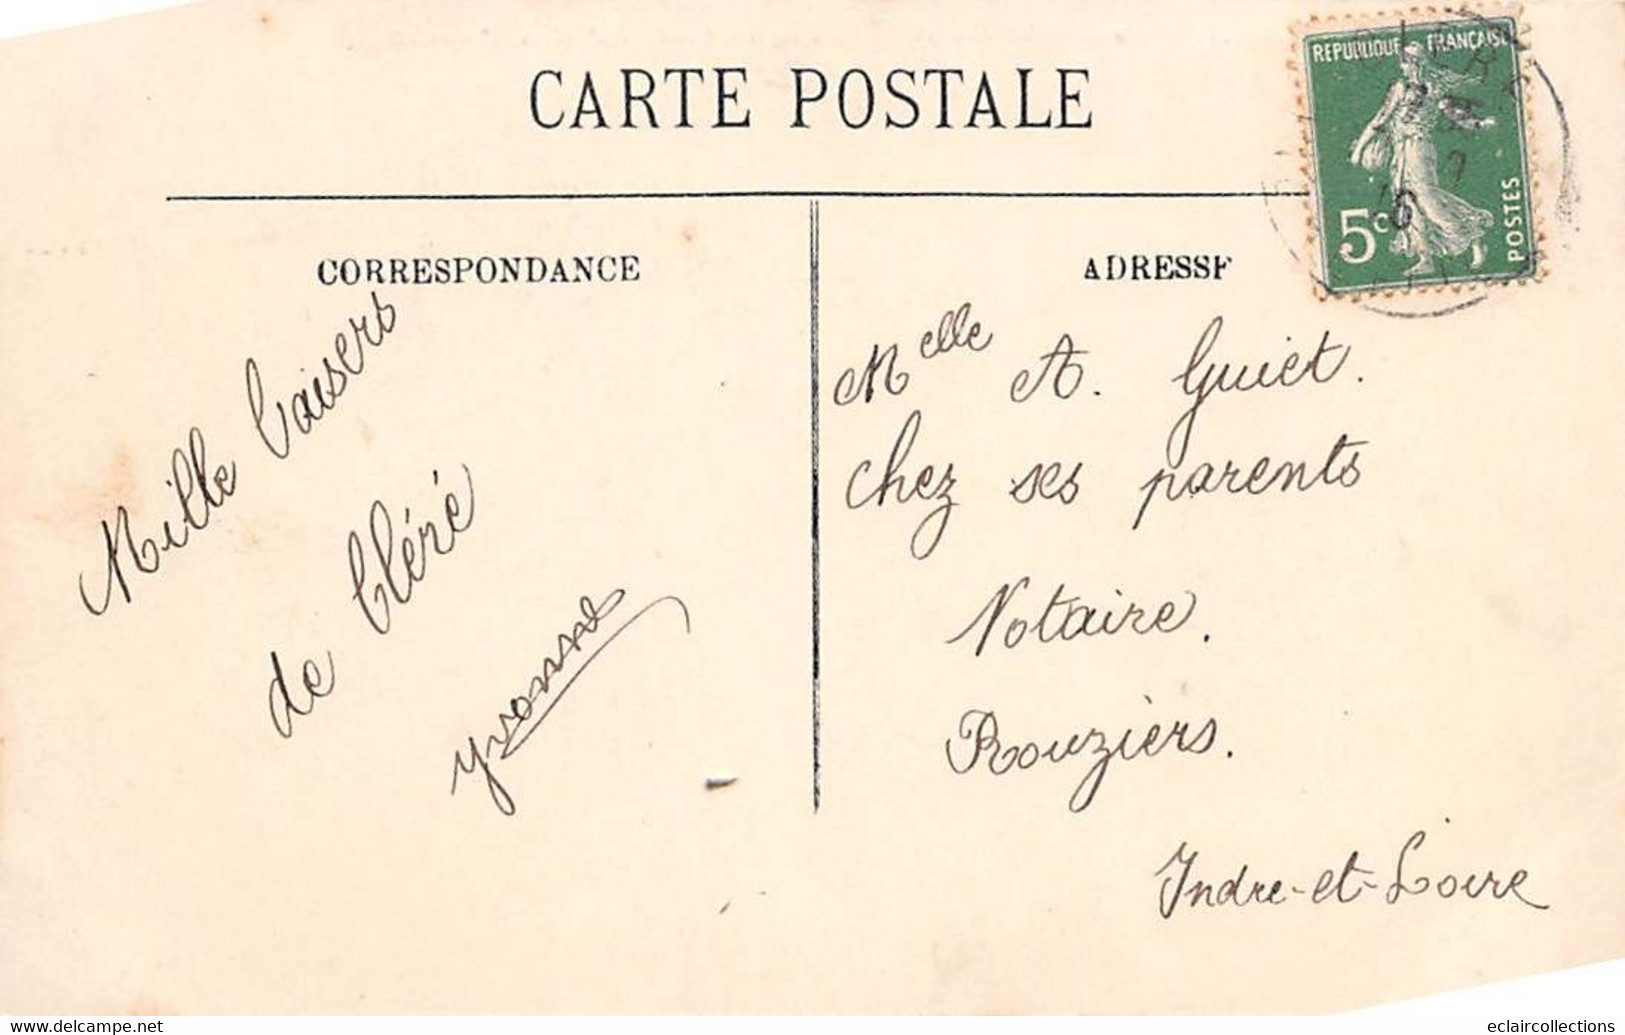 CARTE POSTALE
REPUBLIQUE FRANÇAISE
5c
POSTES
CORRESPONDANCE
ADRESSE
Mille baisers
de Cléré
Yvonne
Melle A. Guiet.
chez ses parents
Notaire.
Rouziers.
Indre-et-Loire
eclaircollections